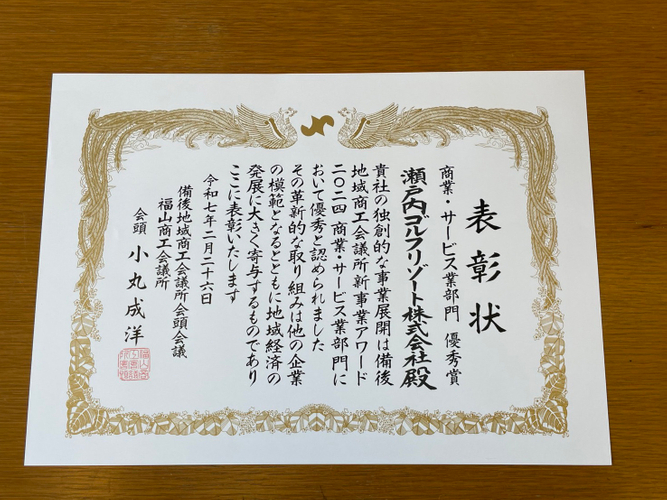 表彰状
商業・サービス業部門 優秀賞
瀬戸内ゴルフリゾート株式会社 殿
貴社の独創的な事業展開は備後
地域商工会議所新事業アワード
二〇二四 商業・サービス業部門に
おいて優秀と認められました
その革新的な取り組みは他の企業
の模範となるとともに地域経済の
発展に大きく寄与するものであり
ここに表彰いたします
令和七年二月二十六日
備後地域商工会議所会頭会議
福山商工会議所
会頭 小丸成洋